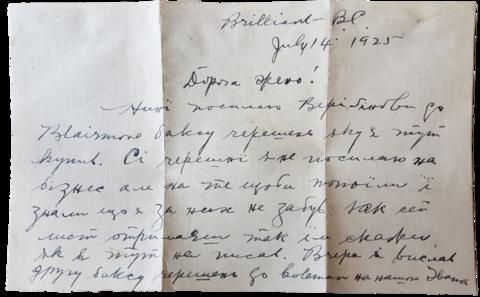 Brilliant B.C.
July 14 1925
Дорога жено!
Нині посилаю до
Blairmore баксу черешень яку я тут
купив. Сі черешні я не посилаю на
бізнес але на те щоби попоїли і
знали що я за них не забув. Як сей
лист отримаєш так їм скажи
як я тут написав. Вчера я вислав
другу баксу черешень до Coleman на нашого Івана